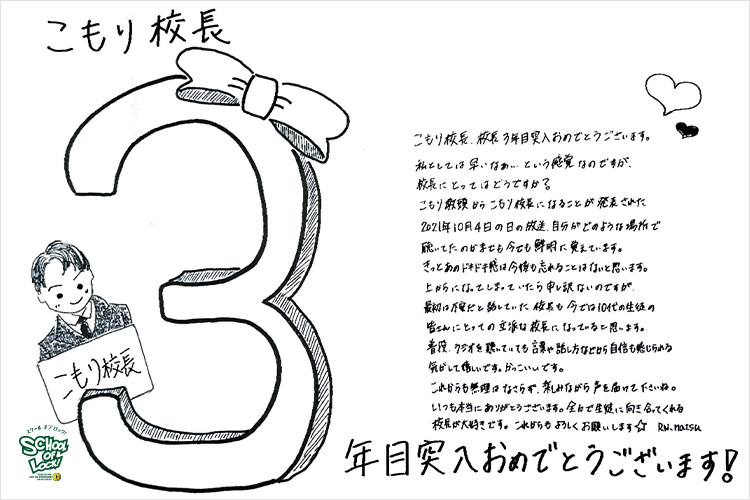 こもり校長
3
こもり校長、校長3年目突入おめでとうございます。
私としては早いなぁ…という感覚なのですが、
校長にとってはどうですか?
こもり教頭からこもり校長になることが発表された
2021年10月4日の日の放送、自分がどのような場所で
聴いてたのかまでも今でも鮮明に覚えています。
きっとあのドキドキ感は今後も忘れることはないと思います。
上からになってしまっていたら申し訳ないのですが、
最初は不安だと話していた校長も今では10代の生徒の
皆さんにとっての立派な校長になっていると思います。
普段、ラジオを聴いていても言葉や話し方などから自信も感じられる
気がして嬉しいです。かっこいいです。
これからも無理はなさらず、楽しみながら声を届けてくださいね。
いつも本当にありがとうございます。全力で生徒に向き合ってくれる
校長が大好きです。これからもよろしくお願いします☆ RN.natsu
こもり校長
スクール オブ ロック!
SCHOOL
OF
LOCK!
年目突入おめでとうございます!